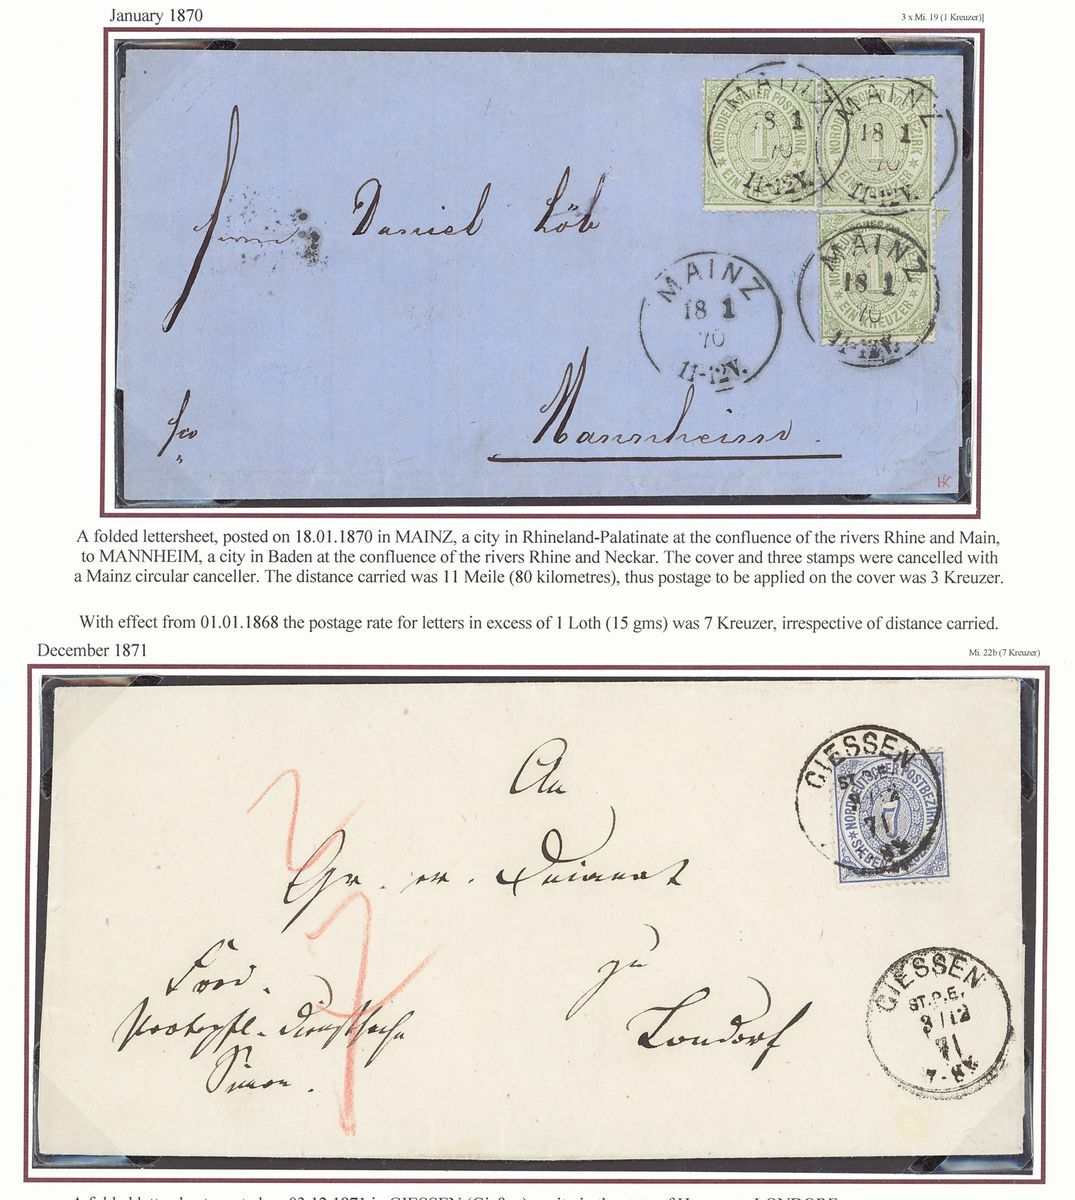 January 1870
3 x Mi. 19 (1 Kreuzer)]
NORDDEUTSCHER POSTBEZIRK
1
EIN KREUZER
MAINZ
18 1
70
11-12V.
NORDDEUTSCHER POSTBEZIRK
1
EIN KREUZER
MAINZ
18 1
70
11-12V.
Daniel Löb
NORDDEUTSCHER POSTBEZIRK
1
EIN KREUZER
MAINZ
18 1
70
11-12V.
MAINZ
18 1
70
11-12V.
Mannheim.
HK
A folded lettersheet, posted on 18.01.1870 in MAINZ, a city in Rhineland-Palatinate at the confluence of the rivers Rhine and Main,
to MANNHEIM, a city in Baden at the confluence of the rivers Rhine and Neckar. The cover and three stamps were cancelled with
a Mainz circular canceller. The distance carried was 11 Meile (80 kilometres), thus postage to be applied on the cover was 3 Kreuzer.
With effect from 01.01.1868 the postage rate for letters in excess of 1 Loth (15 gms) was 7 Kreuzer, irrespective of distance carried.
December 1871
Mi. 22b (7 Kreuzer)
GIESSEN
71
NORDDEUTSCHER POSTBEZIRK
7
An
Gr.
7
zu
Londorf
GIESSEN
ST.P.E.
3/12
71